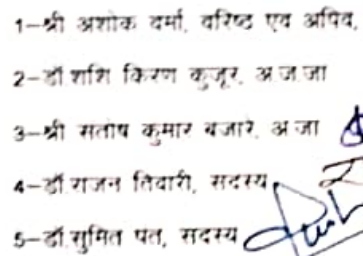 1–श्री अशोक वर्मा, वरिष्ठ एव अपिव,
2–डॉ.शशि किरण कुजूर, अ.ज.जा
3–श्री सतोष कुमार बजारे, अ.जा
4–डॉ.राजन तिवारी, सदस्य
5–डॉ.सुमित पत, सदस्य